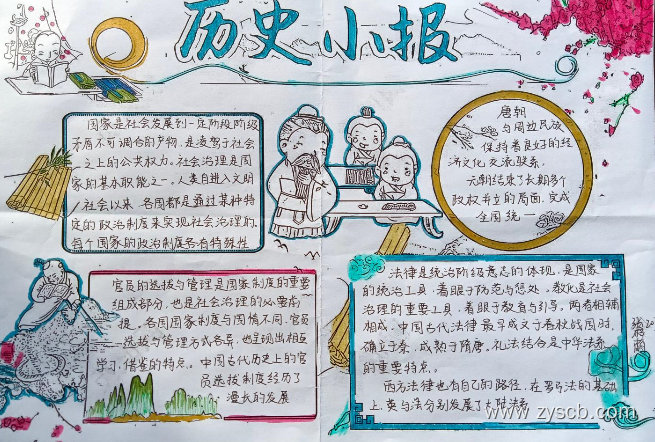 历史小报
国家是社会发展到一定阶段阶级
矛盾不可调合的产物,是凌驾于社会
之上的公共权力。社会治理是国
家的基本职能之一,人类自进入文明
社会以来,各国都是通过某种特
定的政治制度来实现社会治理的,
每个国家的政治制度各有特殊性
唐朝
与周边民族
保持着良好的经
济文化交流联系。
元朝结束了长期多个
政权并立的局面,完成
全国统一
官员的选拔与管理是国家制度的重要
组成部分,也是社会治理的必要前
提。各国国家制度与国情不同,官员
选拔与管理方式各异,也呈现出相互
学习,借鉴的特点。中国古代历史上的官
员选拔制度经历了
漫长的发展
法律是统治阶级意志的体现,是国家
的统治工具,着眼于防范与惩处。教化是社会
治理的重要工具,着眼于教育与引导。两者相辅
相成。中国古代法律最早成文于春秋战国时,
确立于秦,成熟于隋唐。礼法结合是中华法系
的重要特点。
西方法律也有自己的路径,在罗马法的基础
上,英与法分别发展了大陆法系
www.zyscb.com